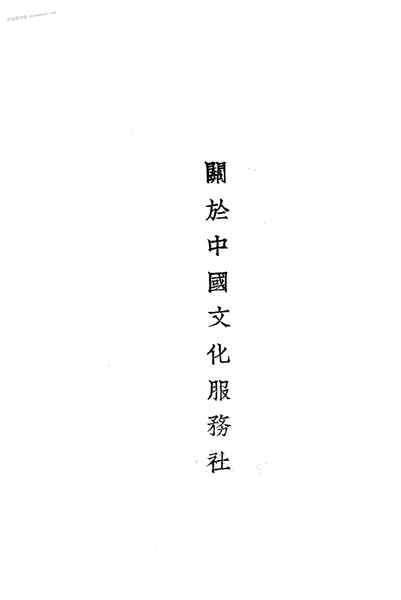 關於中國文化服務社